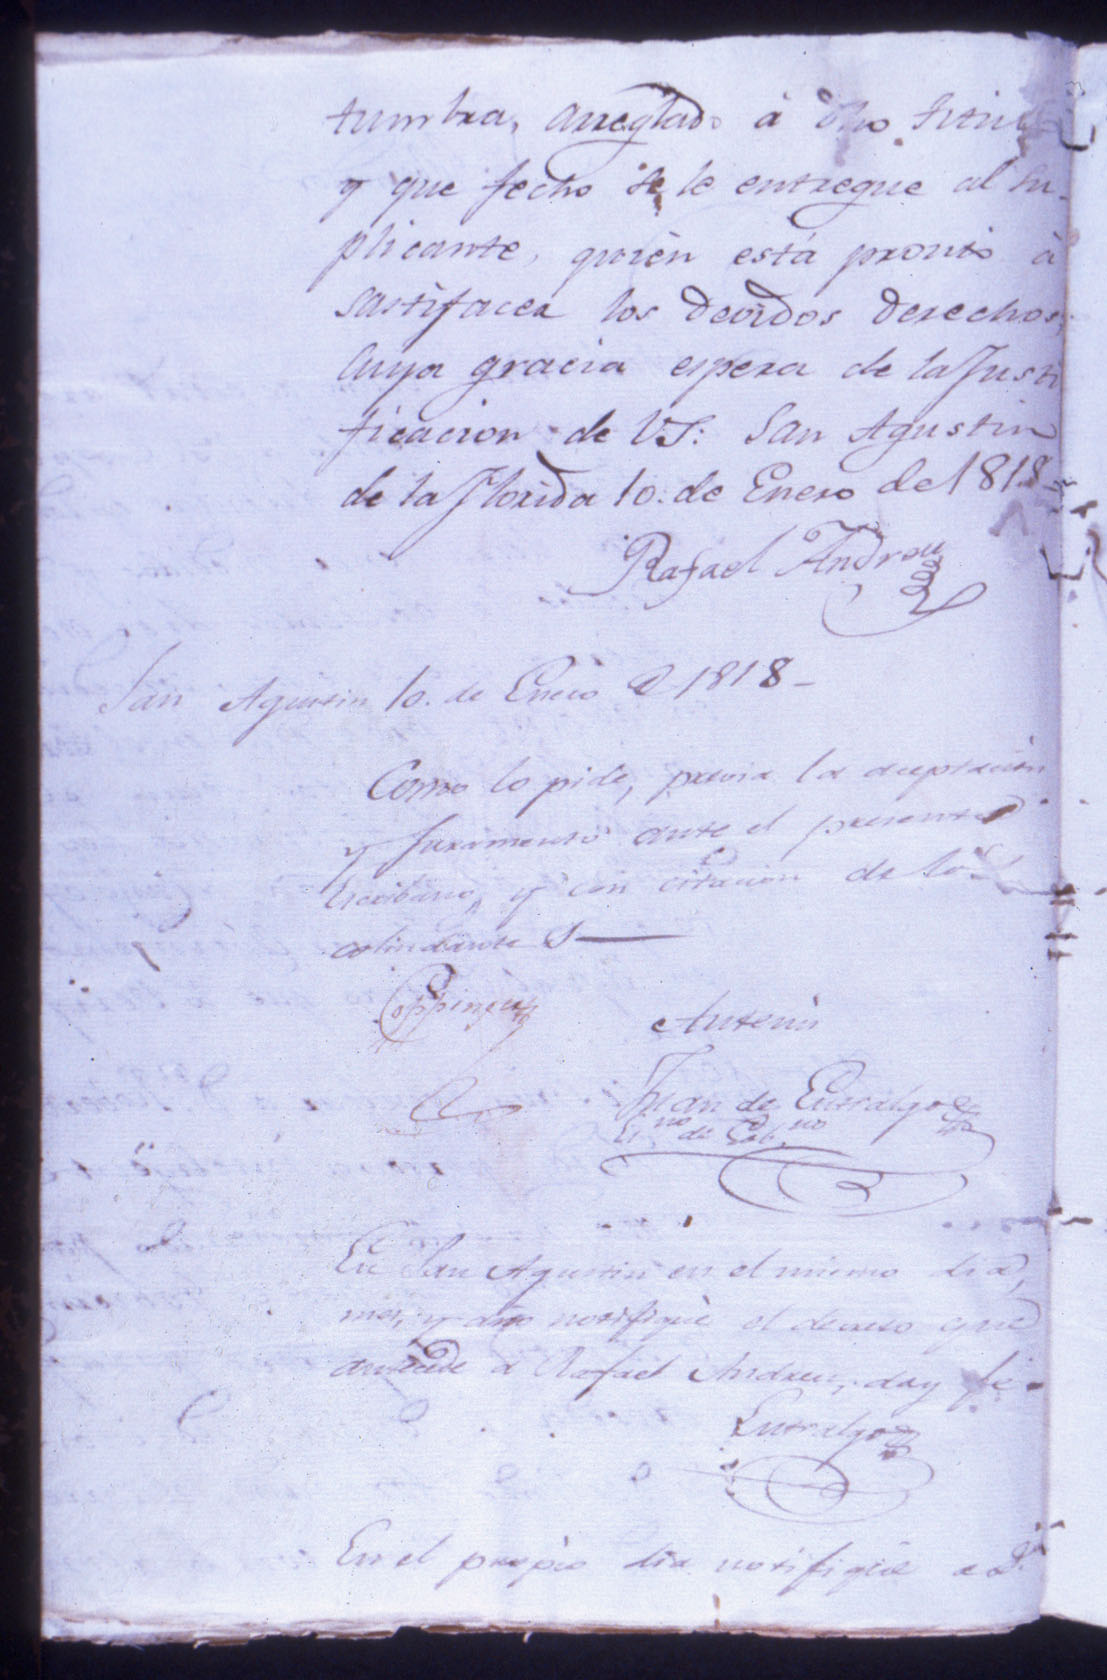 tumbra, arreglado à dho
y que fecho se le entregue al Su-
plicante, quièn está pronto à
sastifacer los devidos derechos,
cuya gracia espera de la Justi
ficacion de VS: San Agustin
de la Florida 10. de Enero de 1818-
Rafael Andreu
San Agustin 10. de Enero de 1818-
Como lo pide, previa la aceptacion
y juramento ante el presente
Escribano, y con citacion de los
colindantes
Coppinger
Antemi
Juan de Entralgo
Es.no de Gob.no
En San Agustin en el mismo dia,
mes, y año notifiquè el decreto que
antecede a Rafael Andreu, doy fe-
Entralgo
En el propio dia notifiquè a